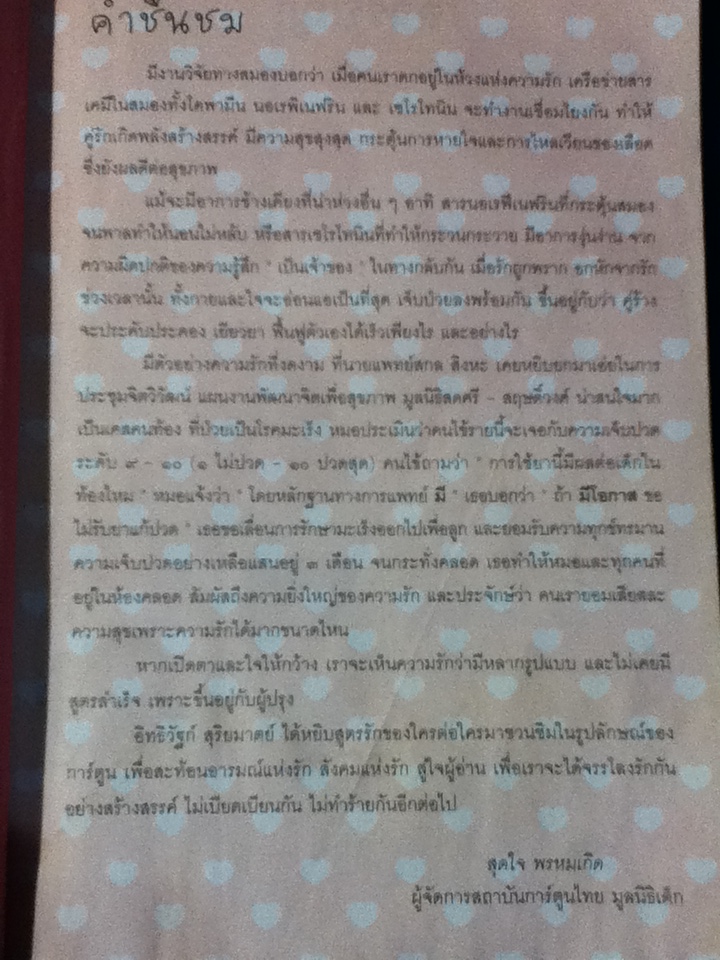 คำชื่นชม
มีงานวิจัยทางสมองบอกว่า เมื่อคนเราตกอยู่ในห้วงแห่งความรัก เครือข่ายสาร
เคมีในสมองทั้งโดพามีน นอเรพิเนฟริน และ เซโรโทนิน จะทำงานเชื่อมโยงกัน ทำให้
คู่รักเกิดพลังสร้างสรรค์ มีความสุขสูงสุด กระตุ้นการหายใจและการไหลเวียนของเลือด
ซึ่งยังผลดีต่อสุขภาพ
แม้จะมีอาการข้างเคียงที่น่าห่วงอื่น ๆ อาทิ สารนอเรพิเนฟรินที่กระตุ้นสมอง
จนพาลทำให้นอนไม่หลับ หรือสารเซโรโทนินที่ทำให้กระวนกระวาย มีอาการงุ่นง่าน จาก
ความผิดปกติของความรู้สึก " เป็นเจ้าของ " ในทางกลับกัน เมื่อรักถูกพราก อกหักจากรัก
ช่วงเวลานั้น ทั้งกายและใจจะอ่อนแอเป็นที่สุด เจ็บป่วยลงพร้อมกัน ขึ้นอยู่กับว่า คู่ร้าง
จะประคับประคอง เยียวยา ฟื้นฟูตัวเองได้เร็วเพียงไร และอย่างไร
มีตัวอย่างความรักที่งดงาม ที่นายแพทย์สกล สิงหะ เคยหยิบยกมาเอ่ยในการ
ประชุมจิตวิวัฒน์ แผนงานพัฒนาจิตเพื่อสุขภาพ มูลนิธิสดศรี - สฤษดิ์วงศ์ น่าสนใจมาก
เป็นเคสคนท้อง ที่ป่วยเป็นโรคมะเร็ง หมอประเมินว่าคนไข้รายนี้จะเจอกับความเจ็บปวด
ระดับ ๙ - ๑๐ (๑ ไม่ปวด - ๑๐ ปวดสุด) คนไข้ถามว่า " การใช้ยานี้มีผลต่อเด็กใน
ท้องไหม " หมอแจ้งว่า " โดยหลักฐานทางการแพทย์ มี " เธอบอกว่า " ถ้า มีโอกาส ขอ
ไม่รับยาแก้ปวด " เธอขอเลื่อนการรักษามะเร็งออกไปเพื่อลูก และยอมรับความทุกข์ทรมาน
ความเจ็บปวดอย่างเหลือแสนอยู่ ๓ เดือน จนกระทั่งคลอด เธอทำให้หมอและทุกคนที่
อยู่ในห้องคลอด สัมผัสถึงความยิ่งใหญ่ของความรัก และประจักษ์ว่า คนเรายอมเสียสละ
ความสุขเพราะความรักได้มากขนาดไหน
หากเปิดตาและใจให้กว้าง เราจะเห็นความรักว่ามีหลากรูปแบบ และไม่เคยมี
สูตรสำเร็จ เพราะขึ้นอยู่กับผู้ปรุง
อิทธิวัฐก์ สุริยมาตย์ ได้หยิบสูตรรักของใครต่อใครมาชวนชิมในรูปลักษณ์ของ
การ์ตูน เพื่อสะท้อนอารมณ์แห่งรัก สังคมแห่งรัก สู่ใจผู้อ่าน เพื่อเราจะได้จรรโลงรักกัน
อย่างสร้างสรรค์ ไม่เบียดเบียนกัน ไม่ทำร้ายกันอีกต่อไป
สุดใจ พรหมเกิด
ผู้จัดการสถาบันการ์ตูนไทย มูลนิธิเด็ก